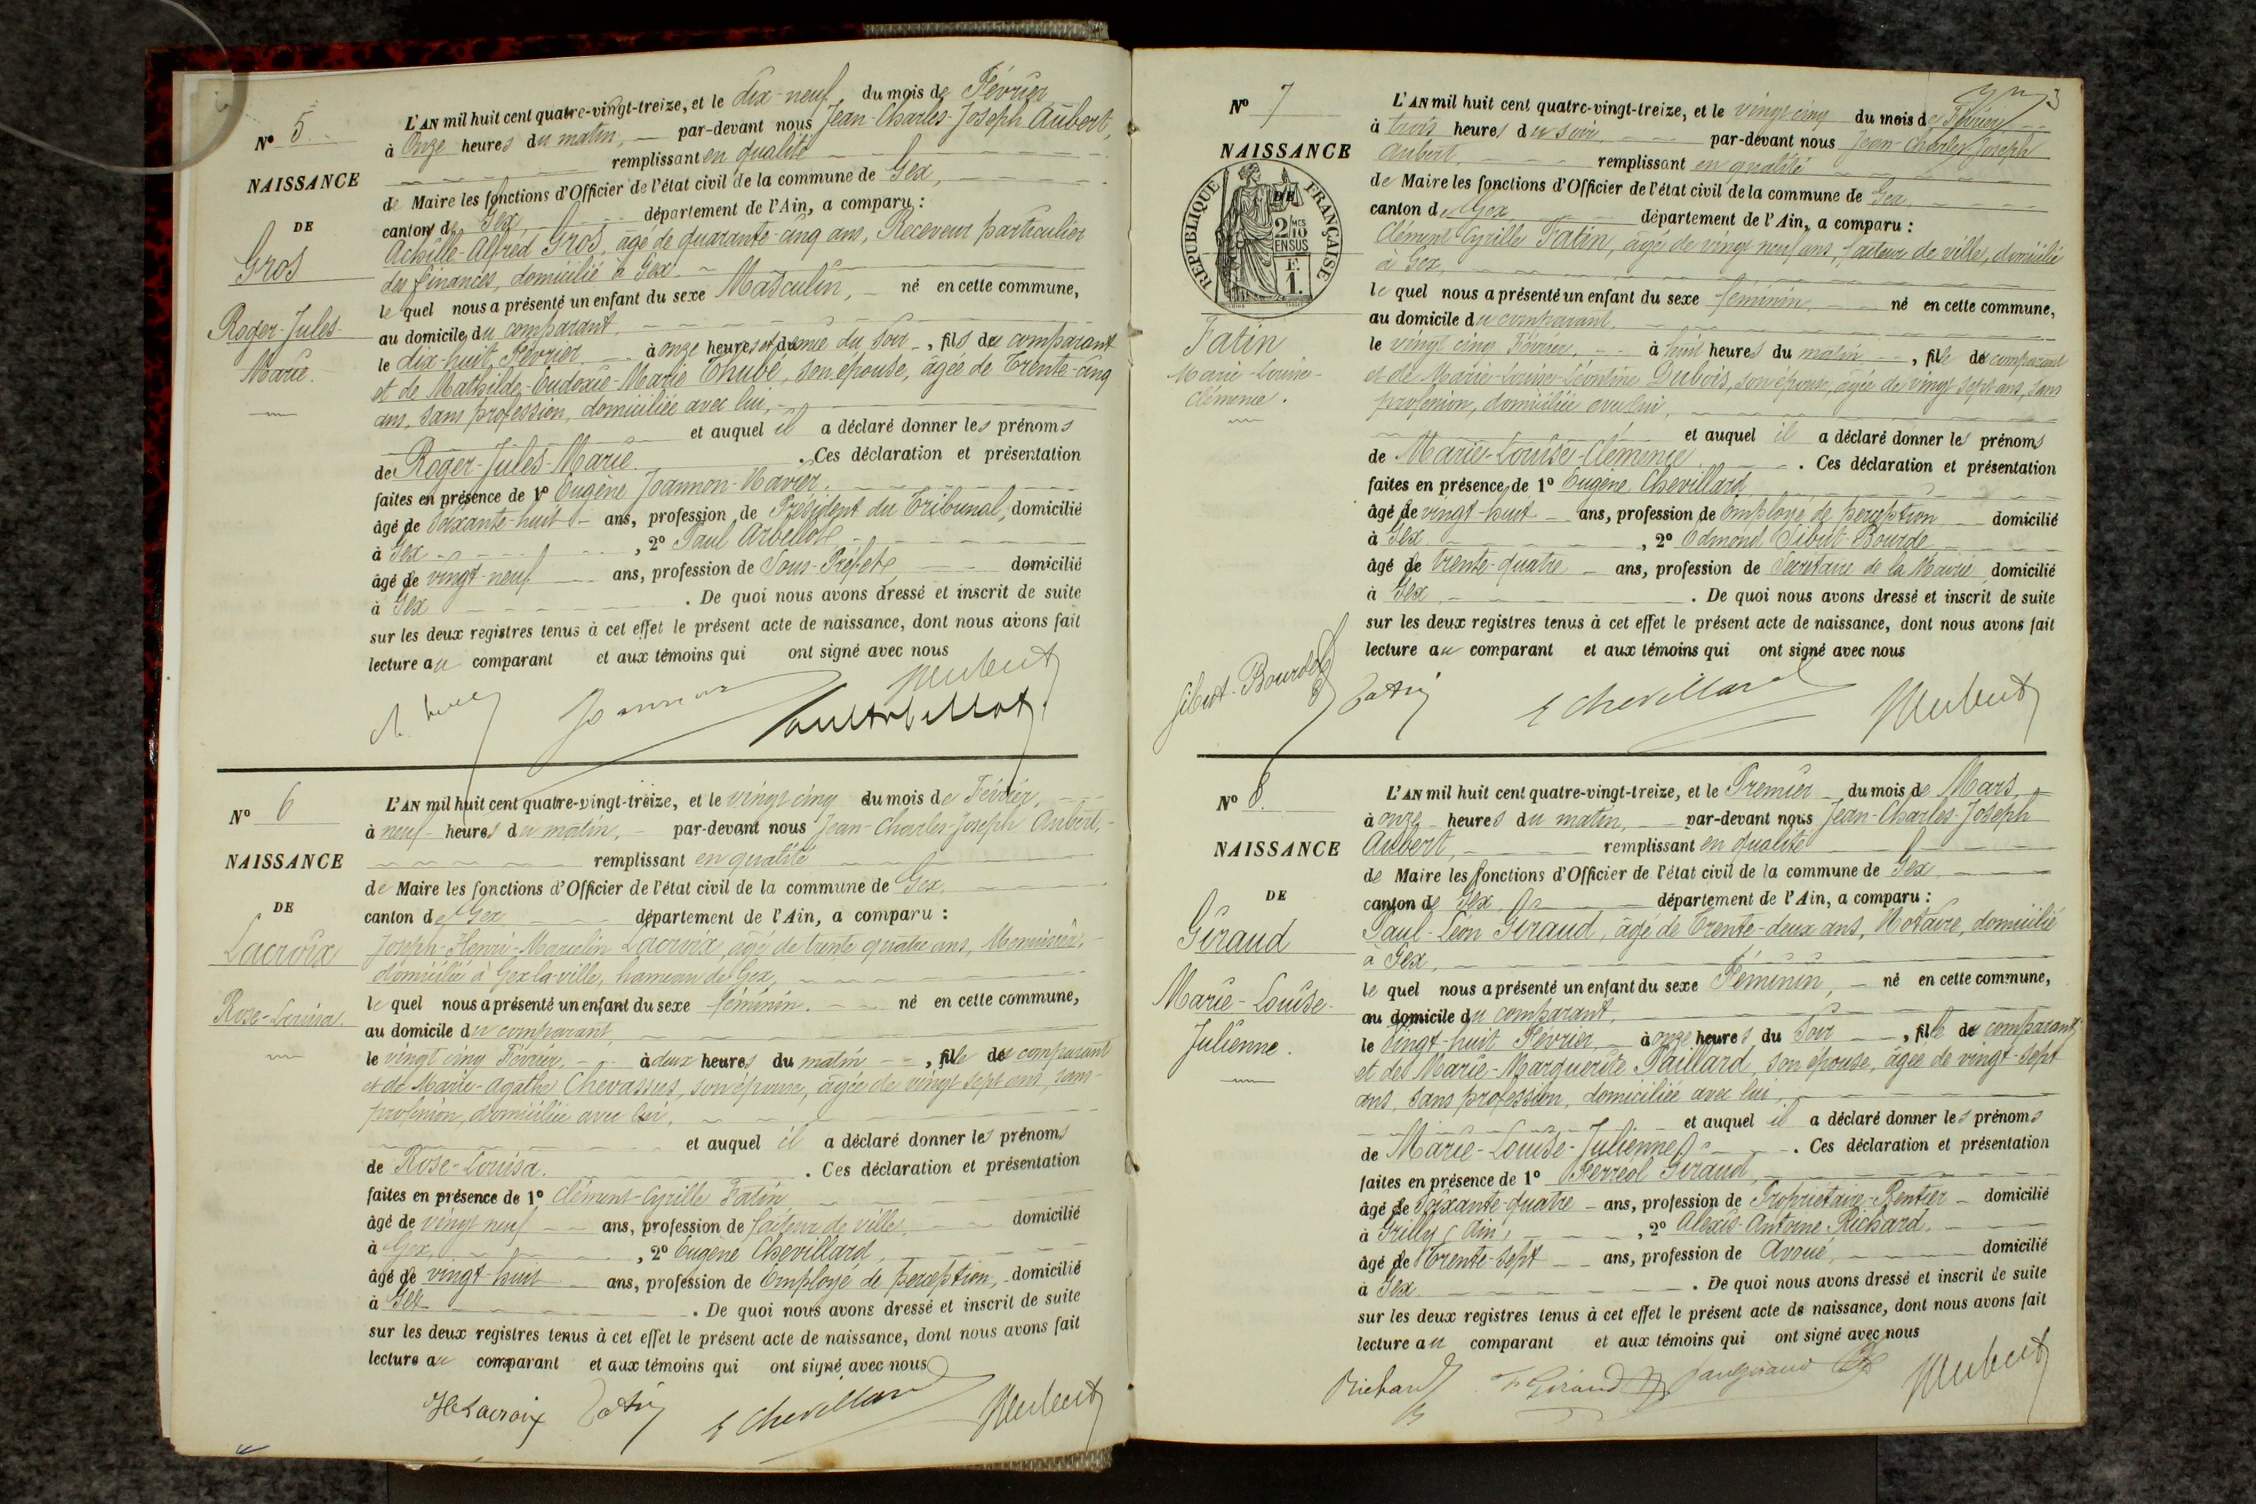 N° 5
NAISSANCE
DE
Gros
Roger-Jules-
Marie.
L'AN mil huit cent quatre-vingt-treize, et le dix-neuf du mois de Février
à Onze heures du matin, par-devant nous Jean-Charles-Joseph Aubert,
remplissant en qualité
de Maire les fonctions d'Officier de l'état civil de la commune de Gex,
canton de Gex département de l'Ain, a comparu :
Achille-Alfred Gros, âgé de quarante-cinq ans, Receveur particulier
des finances, domicilié à Gex.
le quel nous a présenté un enfant du sexe Masculin, né en cette commune,
au domicile du comparant.
le dix-huit Février à onze heures et demie du Soir, fils du comparant
et de Mathilde-Eudoxie-Marie Thube, son épouse, âgée de Trente-cinq
ans, sans profession, domiciliée avec lui,
et auquel il a déclaré donner les prénoms
de Roger-Jules-Marie. Ces déclaration et présentation
faites en présence de 1° Eugène Joannon-Navier.
âgé de Soixante-huit ans, profession de Président du Tribunal, domicilié
à Gex, 2° Paul Arbellot
âgé de vingt-neuf ans, profession de Sous-Préfet domicilié
à Gex. De quoi nous avons dressé et inscrit de suite
sur les deux registres tenus à cet effet le présent acte de naissance, dont nous avons fait
lecture au comparant et aux témoins qui ont signé avec nous
Joannon Paul Arbellot JAubert
N° 6
NAISSANCE
DE
Lacroix
Rose-Louisa.
L'AN mil huit cent quatre-vingt-treize, et le vingt cinq du mois de Février,
à neuf heures du matin, par-devant nous Jean-Charles-Joseph Aubert,
remplissant en qualité
de Maire les fonctions d'Officier de l'état civil de la commune de Gex,
canton de Gex département de l'Ain, a comparu :
Joseph-Henri-Marcelin Lacroix, âgé de trente quatre ans, Menuisier,
domicilié à Gex-la-ville, hameau de Gex,
le quel nous a présenté un enfant du sexe féminin. né en cette commune,
au domicile du comparant,
le vingt cinq Février, à deux heures du matin, fille du comparant
et de Marie-Agathe Chevassus, son épouse, âgée de vingt sept ans, sans
profession, domiciliée avec lui,
et auquel il a déclaré donner les prénoms
de Rose-Louisa. Ces déclaration et présentation
faites en présence de 1° Clément-Cyrille Fatin
âgé de vingt neuf ans, profession de facteur de ville, domicilié
à Gex, 2° Eugène Chevillard,
âgé de vingt-huit ans, profession de Employé de perception, domicilié
à Gex. De quoi nous avons dressé et inscrit de suite
sur les deux registres tenus à cet effet le présent acte de naissance, dont nous avons fait
lecture au comparant et aux témoins qui ont signé avec nous
HLacroix Fatin E Chevillard JAubert
3
N° 7
NAISSANCE
DE
REPUBLIQUE FRANÇAISE
2/10 MES
EN SUS
F.
1.
Fatin
Marie-Louise-
Clémence.
L'AN mil huit cent quatre-vingt-treize, et le vingt cinq du mois de Février
à trois heures du soir, par-devant nous Jean-Charles-Joseph
Aubert, remplissant en qualité
de Maire les fonctions d'Officier de l'état civil de la commune de Gex
canton de Gex département de l'Ain, a comparu :
Clément-Cyrille Fatin, âgé de vingt neuf ans, facteur de ville, domicilié
à Gex,
le quel nous a présenté un enfant du sexe féminin, né en cette commune,
au domicile du comparant,
le vingt cinq Février, à huit heures du matin, fille du comparant
et de Marie-Louise-Léontine Dubois, son épouse, âgée de vingt sept ans, sans
profession, domiciliée avec lui,
et auquel il a déclaré donner les prénoms
de Marie-Louise-Clémence. Ces déclaration et présentation
faites en présence de 1° Eugène Chevillard
âgé de vingt-huit ans, profession de Employé de perception domicilié
à Gex, 2° Edmond Gibut-Bourde
âgé de trente-quatre ans, profession de Secrétaire de la Mairie domicilié
à Gex. De quoi nous avons dressé et inscrit de suite
sur les deux registres tenus à cet effet le présent acte de naissance, dont nous avons fait
lecture au comparant et aux témoins qui ont signé avec nous
Gibut-Bourde Fatin E Chevillard JAubert
N° 8.
NAISSANCE
DE
Giraud
Marie-Louise-
Julienne.
L'AN mil huit cent quatre-vingt-treize, et le Premier du mois de Mars,
à onze heures du matin, par-devant nous Jean-Charles-Joseph
Aubert, remplissant en qualité
de Maire les fonctions d'Officier de l'état civil de la commune de Gex
canton de Gex département de l'Ain, a comparu :
Paul-Léon Giraud, âgé de Trente-deux ans, Notaire, domicilié
à Gex,
le quel nous a présenté un enfant du sexe Féminin, né en cette commune,
au domicile du comparant,
le Vingt-huit Février à onze heures du Soir, fille du comparant
et de Marie-Marguerite Paillard, son épouse, âgée de vingt-sept
ans, sans profession, domiciliée avec lui,
et auquel il a déclaré donner les prénoms
de Marie-Louise-Julienne. Ces déclaration et présentation
faites en présence de 1° Ferréol Giraud,
âgé de Soixante-quatre ans, profession de Propriétaire-Rentier domicilié
à Grilly (Ain), 2° Alexis-Antoine Richard,
âgé de Trente-sept ans, profession de Avoué, domicilié
à Gex. De quoi nous avons dressé et inscrit de suite
sur les deux registres tenus à cet effet le présent acte de naissance, dont nous avons fait
lecture au comparant et aux témoins qui ont signé avec nous
Richard F Giraud Paul Giraud JAubert